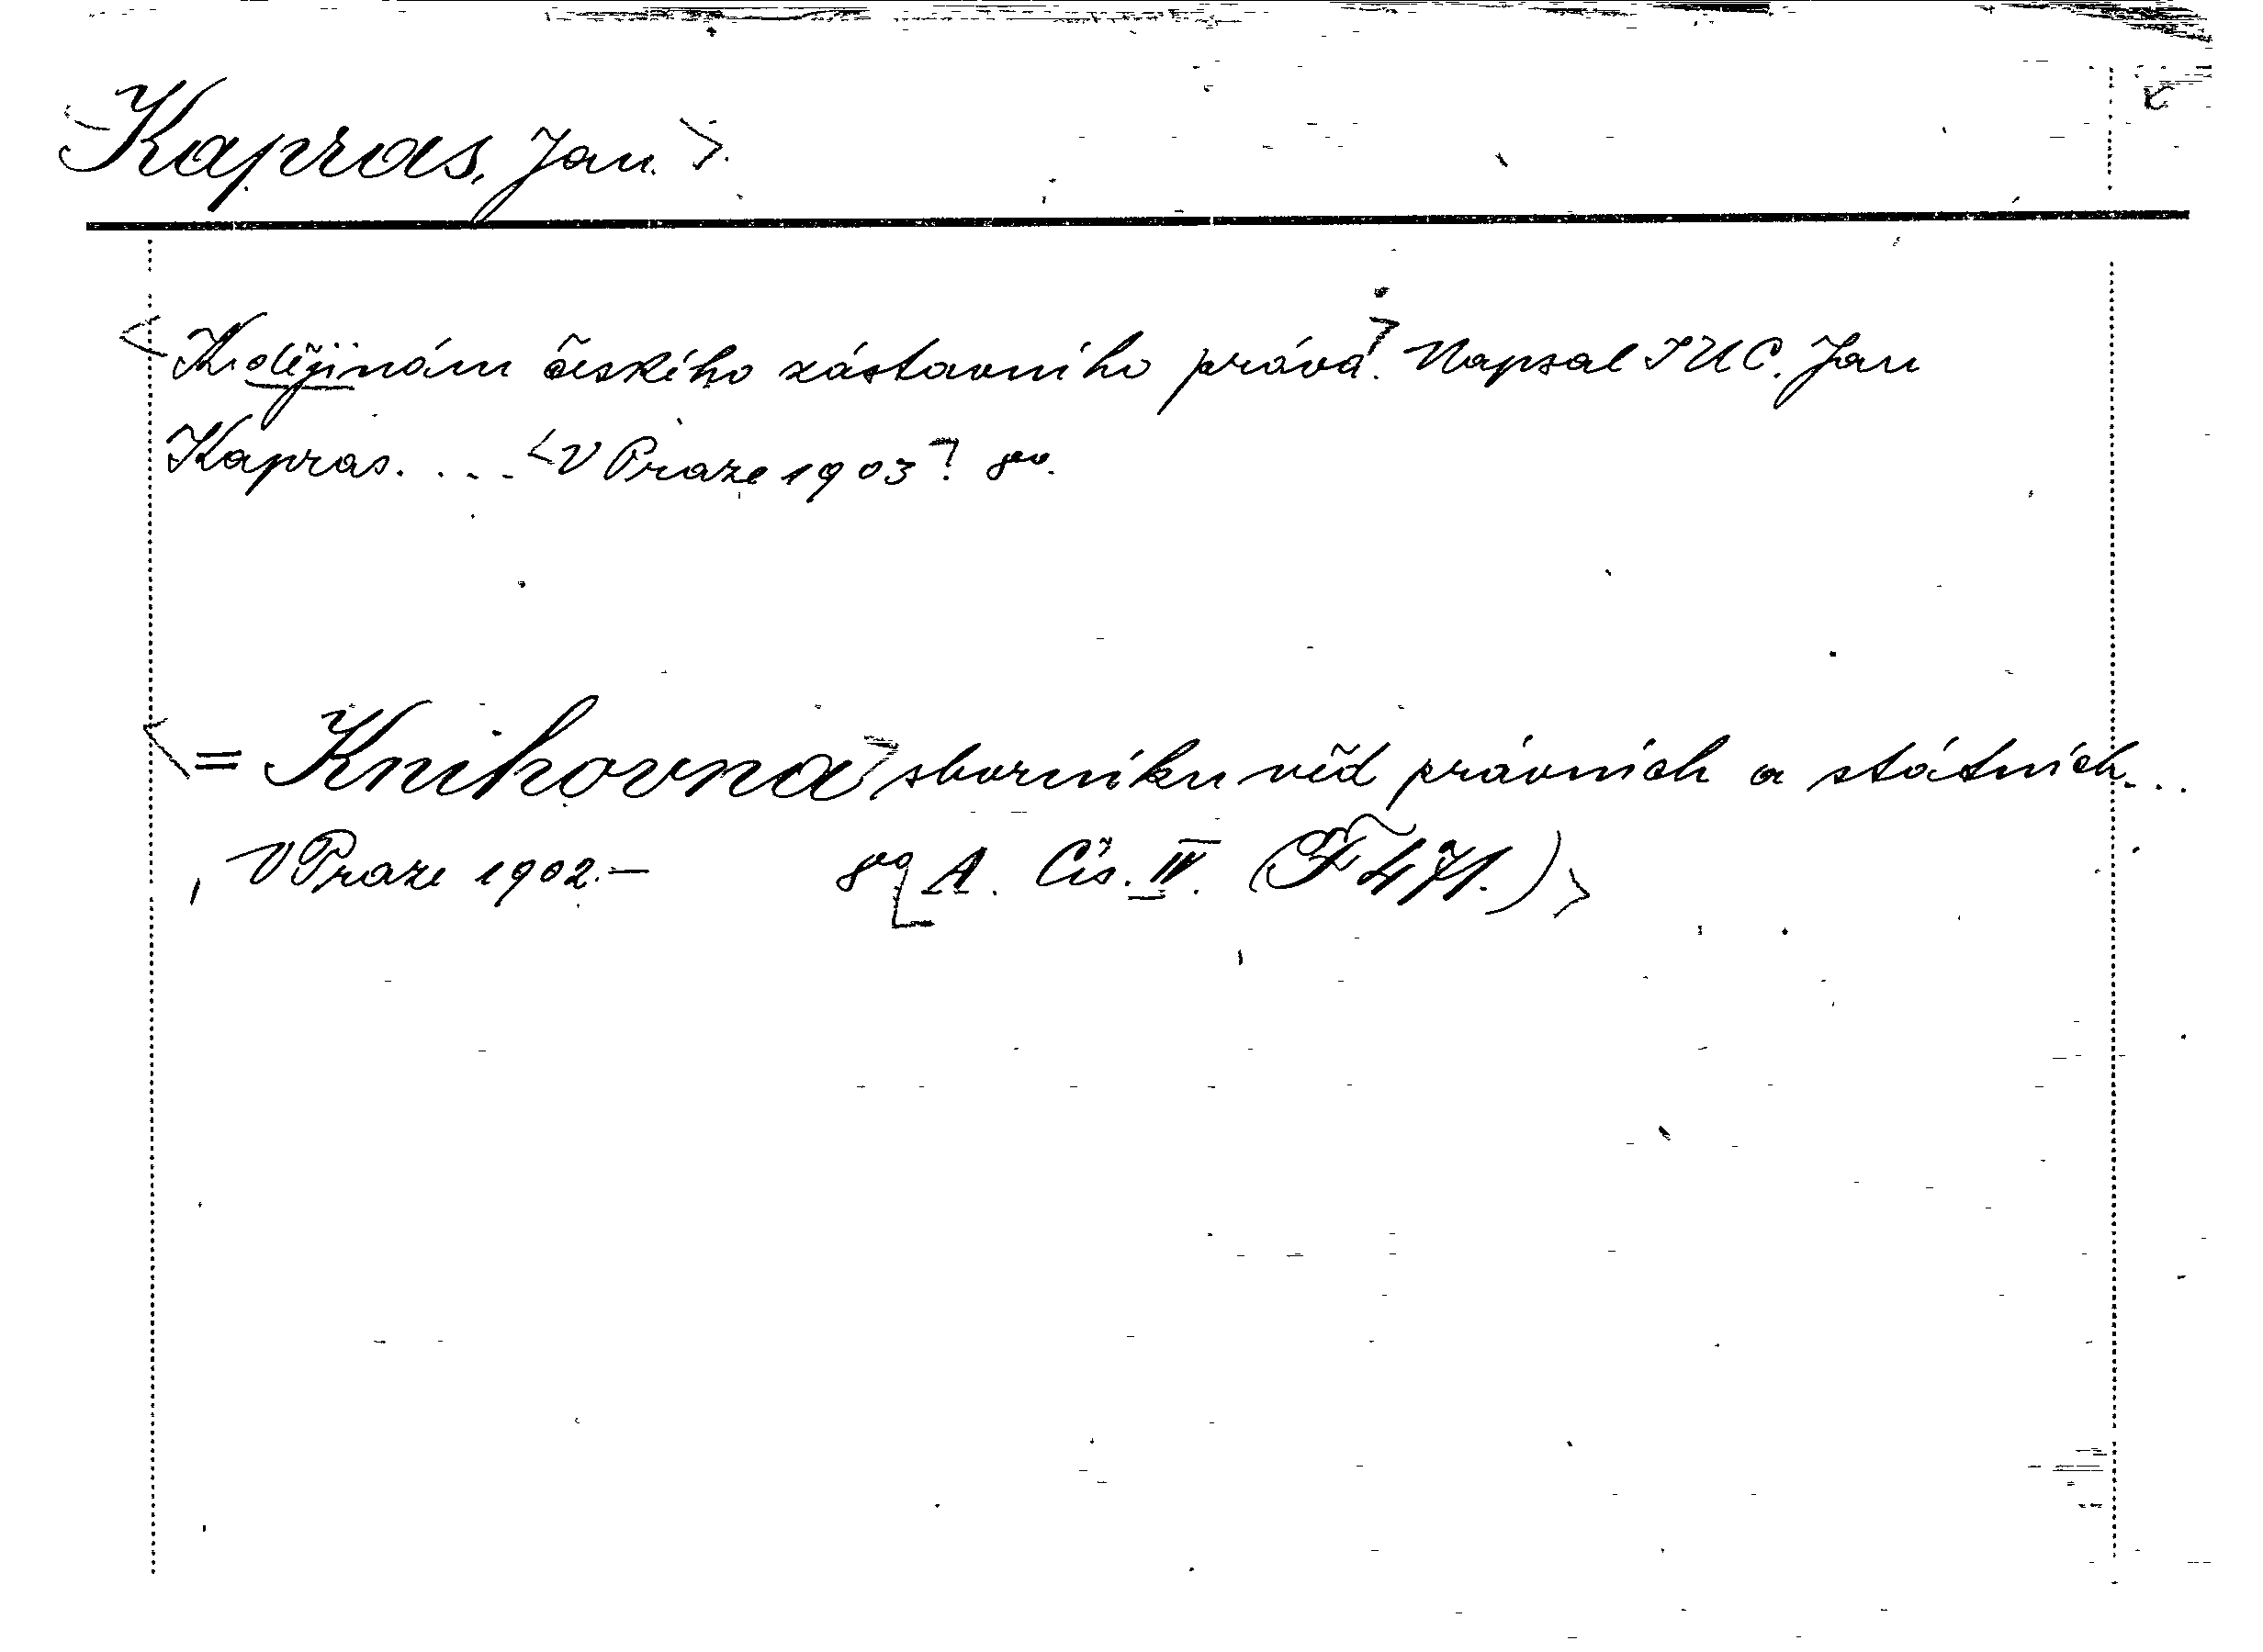 Kapras, Jan.
K dějinám českého zástavního práva. Napsal JUC. Jan
Kapras. . . . V Praze 1903. 8o.
= Knihovna sborníku věd právních a státních. . .
V Praze 1902.— 8o A. Čís. IV. (F 471.)